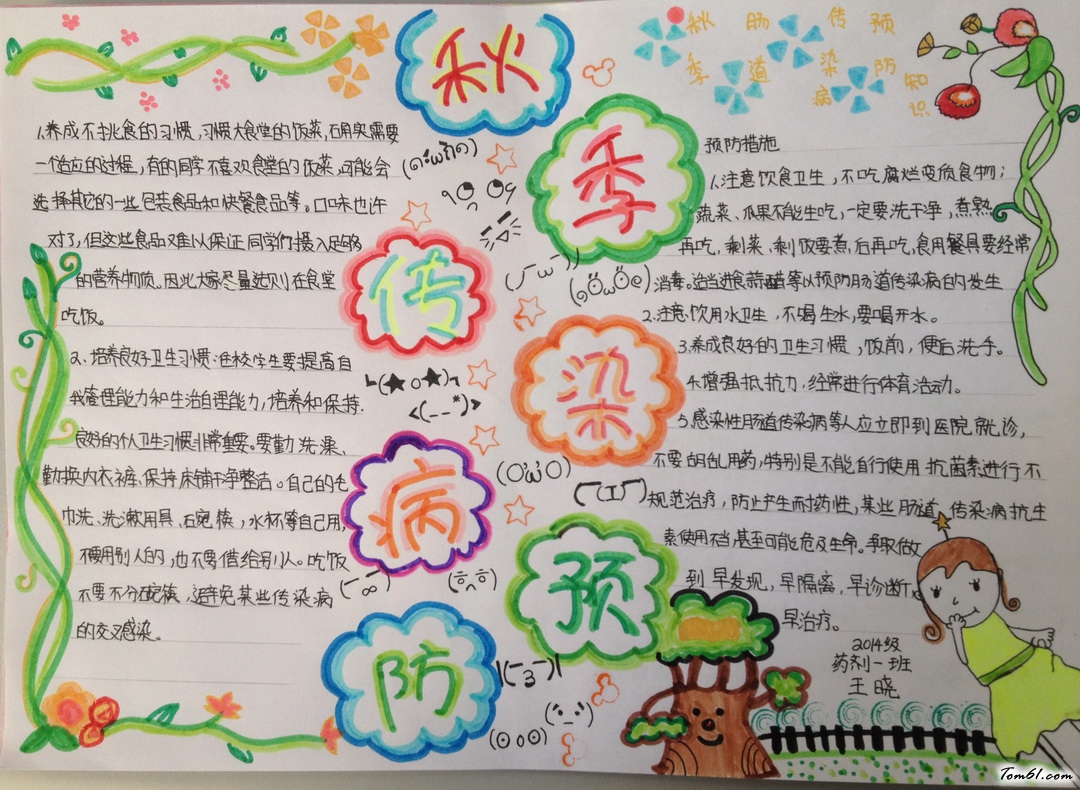 秋
季
传
染
病
预
防
秋 肠 传 预
季 道 染 防
病 知
识
1.养成不挑食的习惯,习惯大食堂的饭菜,确实需要
一个适应的过程,有的同学不喜欢食堂的饭菜,可能会
选择其它的一些包装食品和快餐食品等。口味也许
对了,但这些食品难以保证同学们摄入足够
的营养物质。因此大家尽量选则在食堂
吃饭。
2、培养良好卫生习惯:进校学生要提高自
我管理能力和生活自理能力,培养和保持
良好的个人卫生习惯非常重要。要勤洗澡、
勤换内衣裤、保持床铺干净整洁。自己的毛
巾洗、洗漱用具、碗筷,水杯等自己用,
不要用别人的,也不要借给别人。吃饭
不要不分碗筷,避免某些传染病
的交叉感染。
预防措施
1.注意饮食卫生,不吃腐烂变质食物;
蔬菜、瓜果不能生吃,一定要洗干净,煮熟
再吃,剩菜、剩饭要煮后再吃,食用餐具要经常
消毒。适当进食蒜醋等以预防肠道传染病的发生
2.注意饮用水卫生,不喝生水,要喝开水。
3.养成良好的卫生习惯,饭前,便后洗手。
4.增强抵抗力,经常进行体育活动。
5.感染性肠道传染病等人应立即到医院就诊,
不要胡乱用药,特别是不能自行使用抗菌素进行不
规范治疗,防止产生耐药性,某些肠道传染病抗生
素使用不当,甚至可能危及生命。争取做
到早发现,早隔离,早诊断,
早治疗。
2014级
药剂一班
王晓
Tom61.com